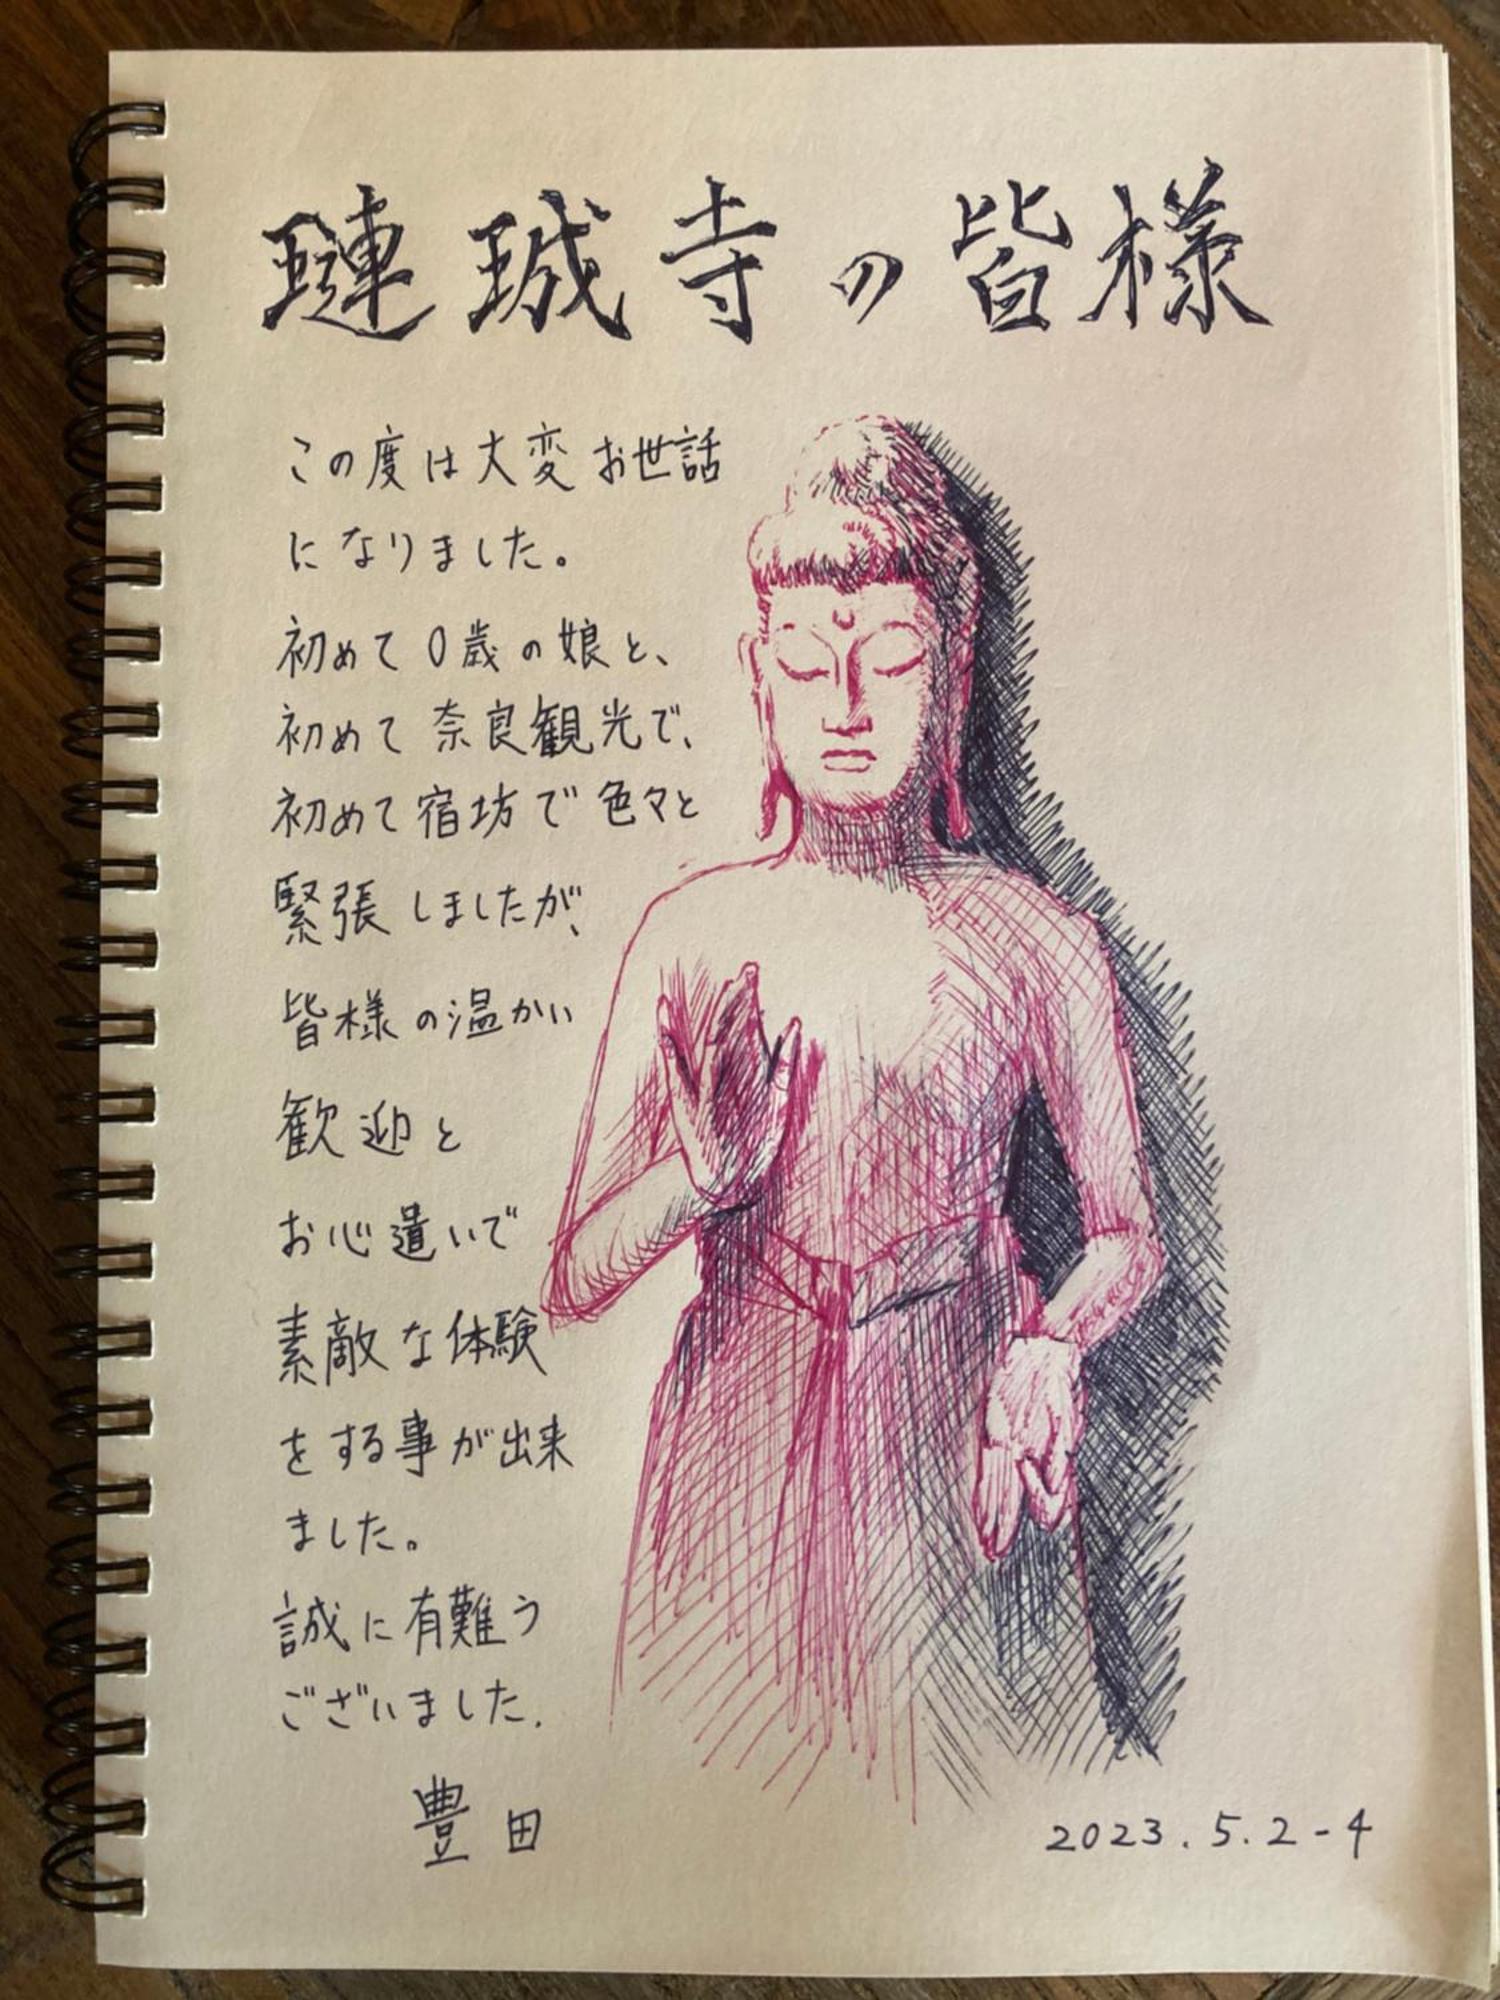 璉珹寺の皆様
この度は大変お世話
になりました。
初めて0歳の娘と、
初めて奈良観光で、
初めて宿坊で色々と
緊張しましたが、
皆様の温かい
歓迎と
お心遣いで
素敵な体験
をする事が出来
ました。
誠に有難う
ございました.
豊田
2023.5.2-4